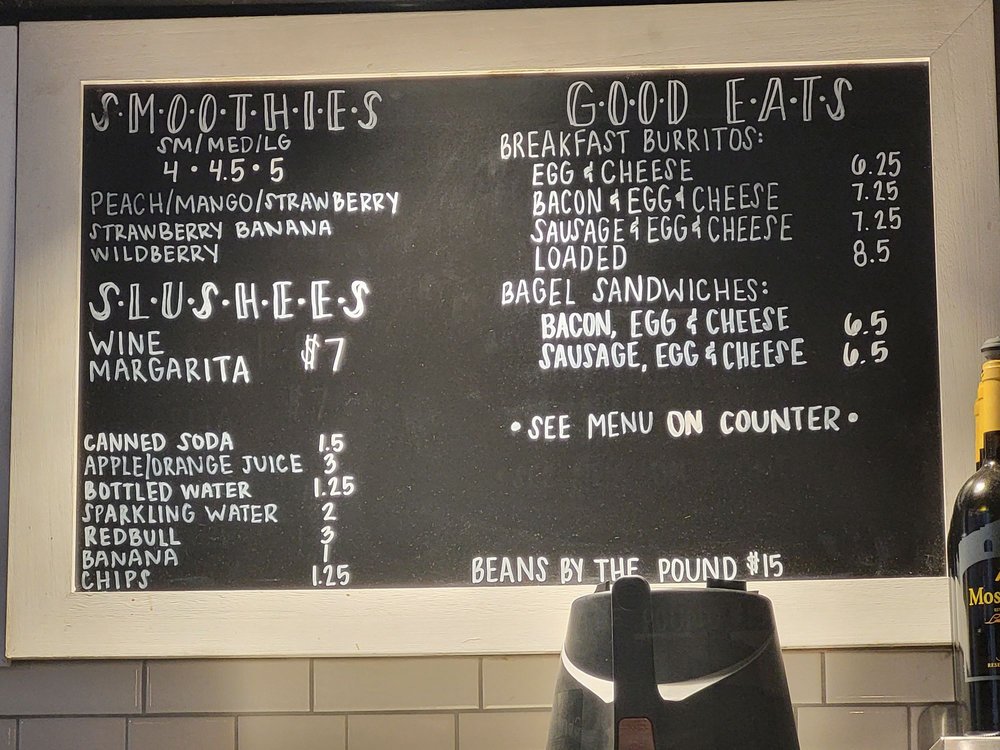 S·M·O·O·T·H·I·E·S
SM/MED/LG
4 • 4.5 • 5
PEACH/MANGO/STRAWBERRY
STRAWBERRY BANANA
WILDBERRY
S·L·U·S·H·E·E·S
WINE
MARGARITA $7
CANNED SODA 1.5
APPLE/ORANGE JUICE 3
BOTTLED WATER 1.25
SPARKLING WATER 2
REDBULL 3
BANANA 1
CHIPS 1.25
G·O·O·D E·A·T·S
BREAKFAST BURRITOS:
EGG & CHEESE 6.25
BACON & EGG & CHEESE 7.25
SAUSAGE & EGG & CHEESE 7.25
LOADED 8.5
BAGEL SANDWICHES:
BACON, EGG & CHEESE 6.5
SAUSAGE, EGG & CHEESE 6.5
• SEE MENU ON COUNTER •
BEANS BY THE POUND $15
Mos